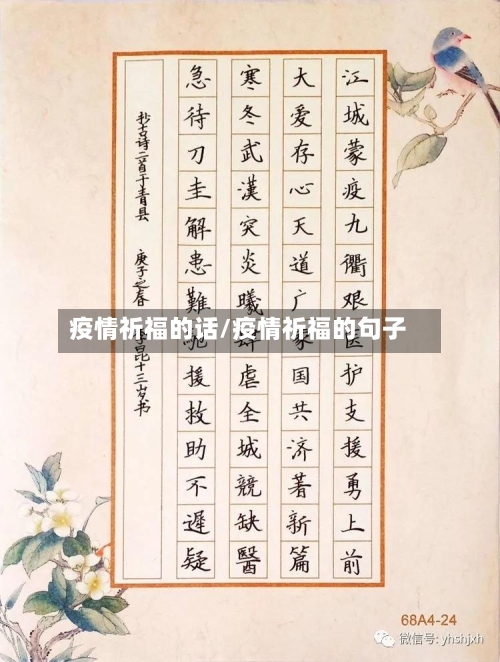 江城蒙疫九衢艰医护支援勇上前
大爱存心天道广家国共济著新篇
寒冬武漢突炎曦肆虐全城競缺醫
急待刀圭解患難馳援救助不遲疑
抄古诗二首于青县 庚子之春 昆十三岁书
疫情祈福的话/疫情祈福的句子
68A4-24
微信号: yhshjxh